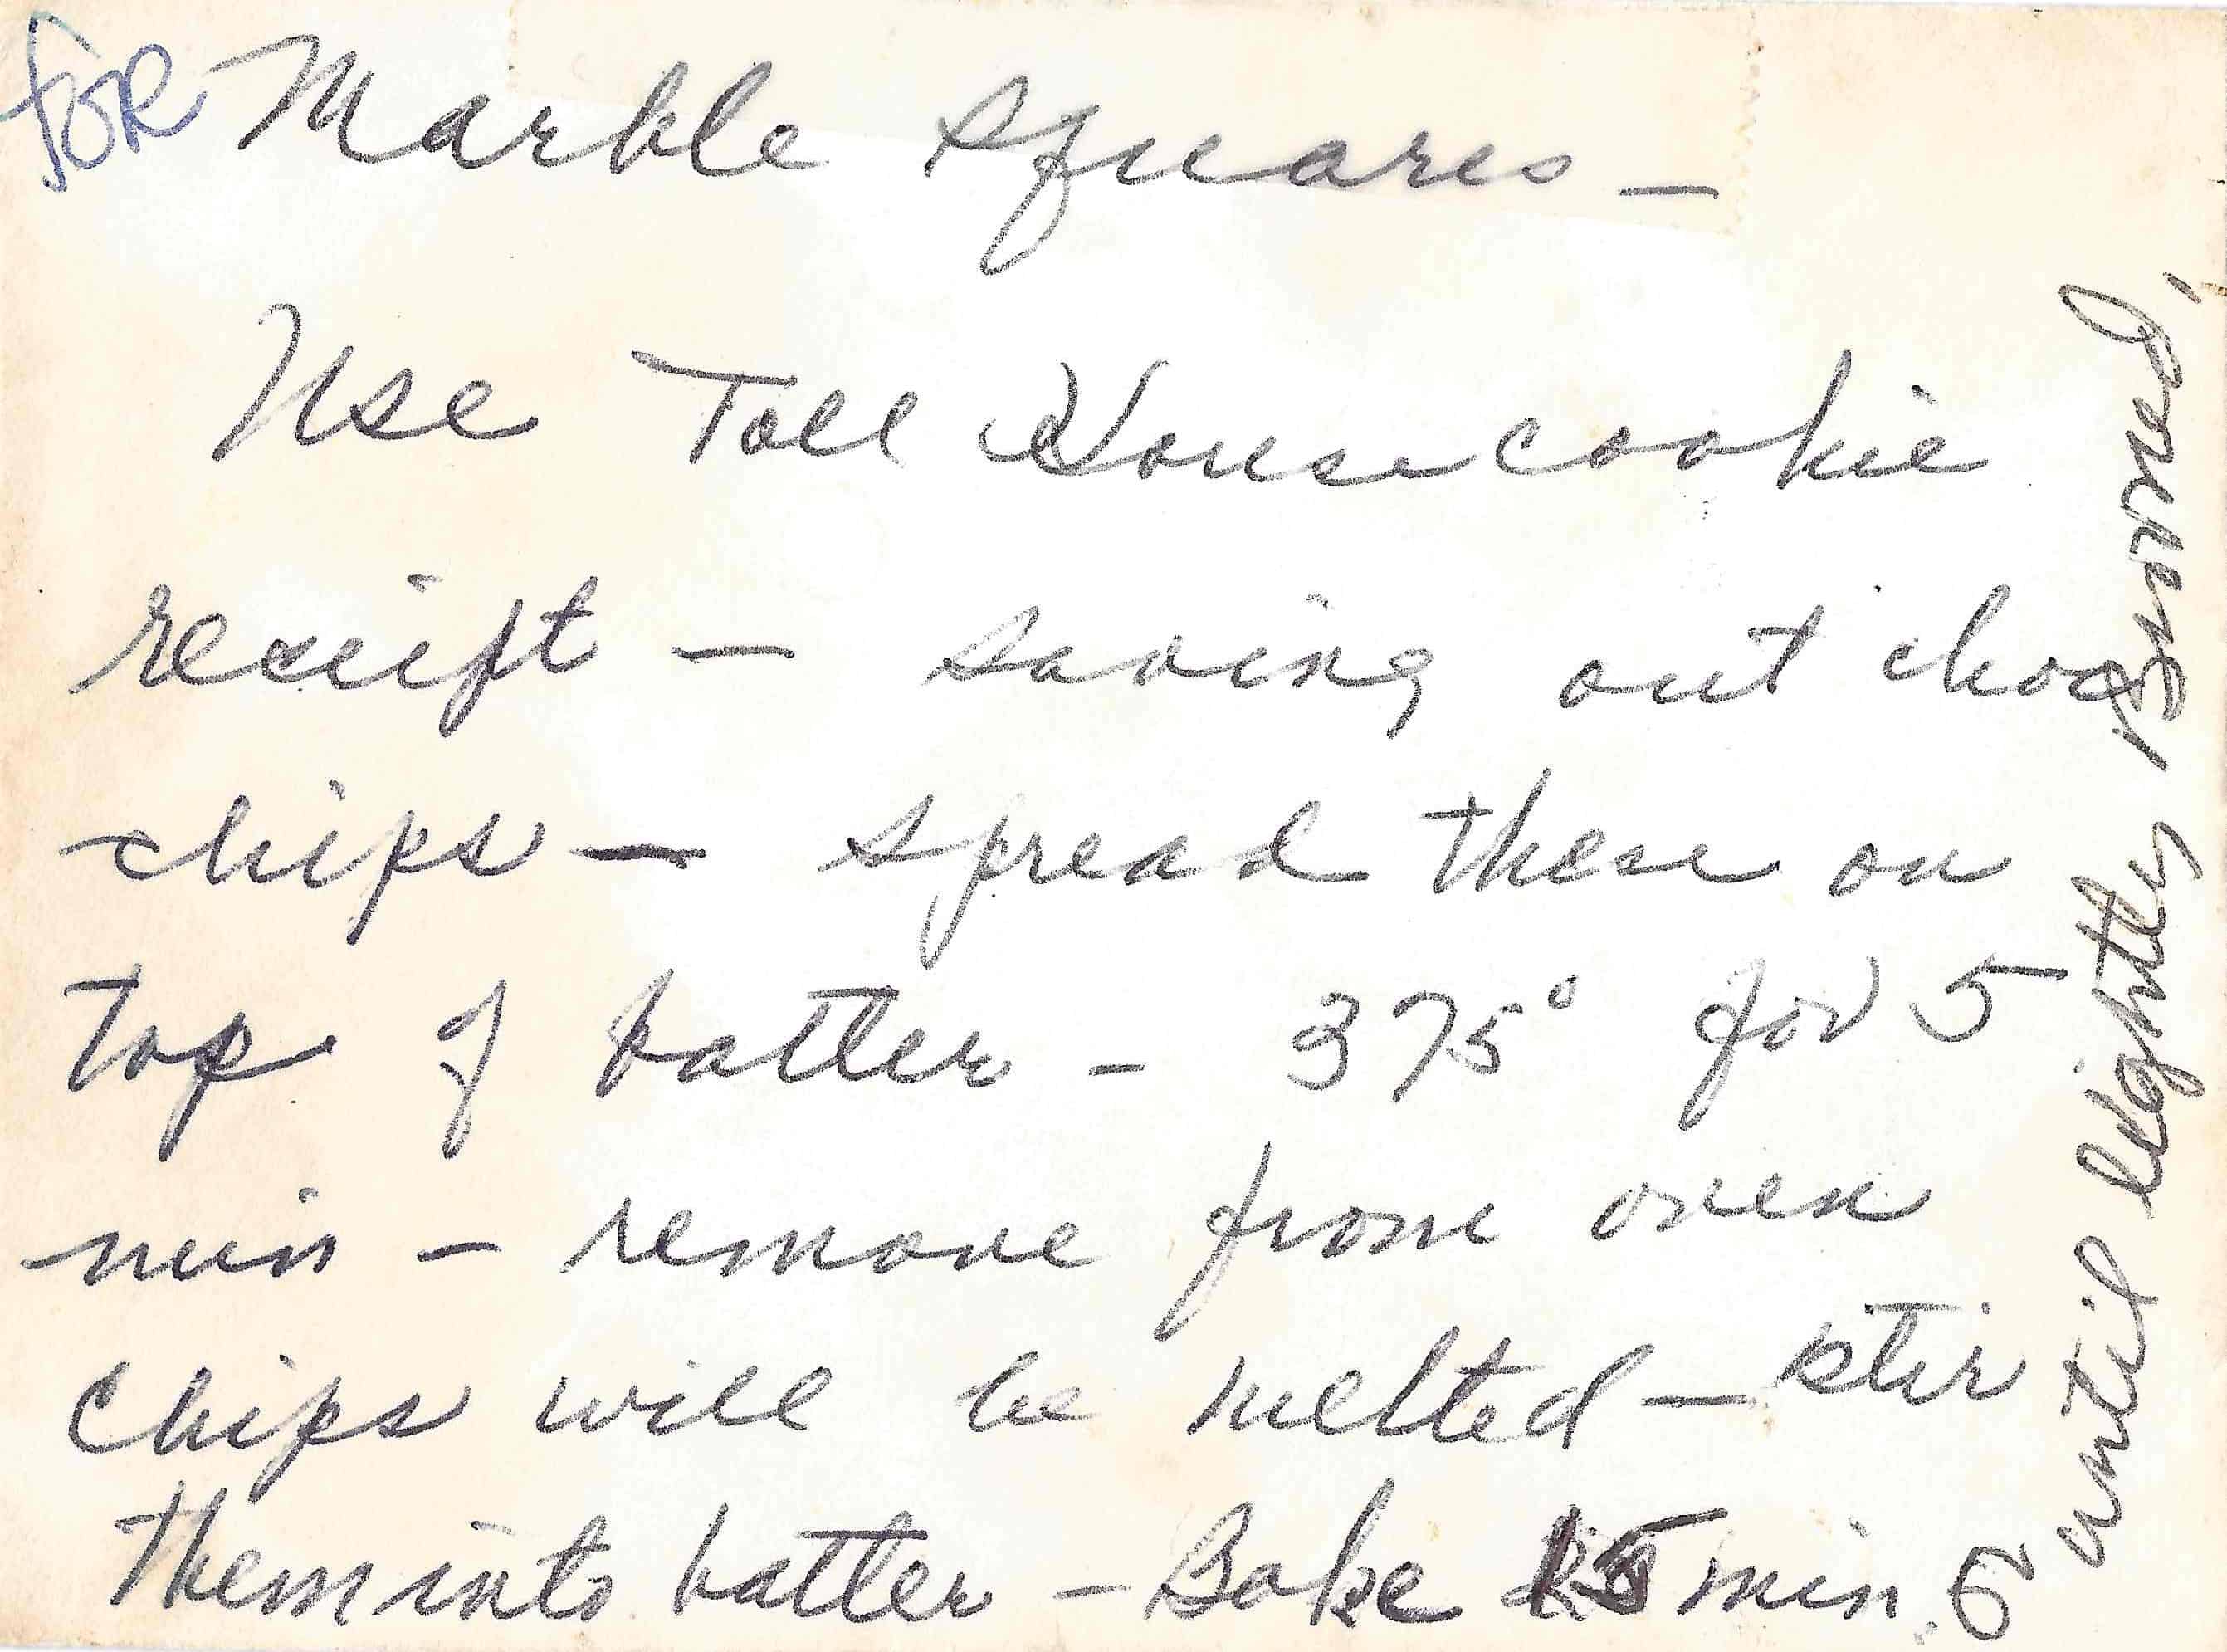 for Marble Squares —
Use Toll House cookie
receipt — saving out choc
chips — spread these on
top of batter — 375° for 5
min — remove from oven
chips will be melted — stir
them into batter — Bake 15 min.
or until lightly Browned.